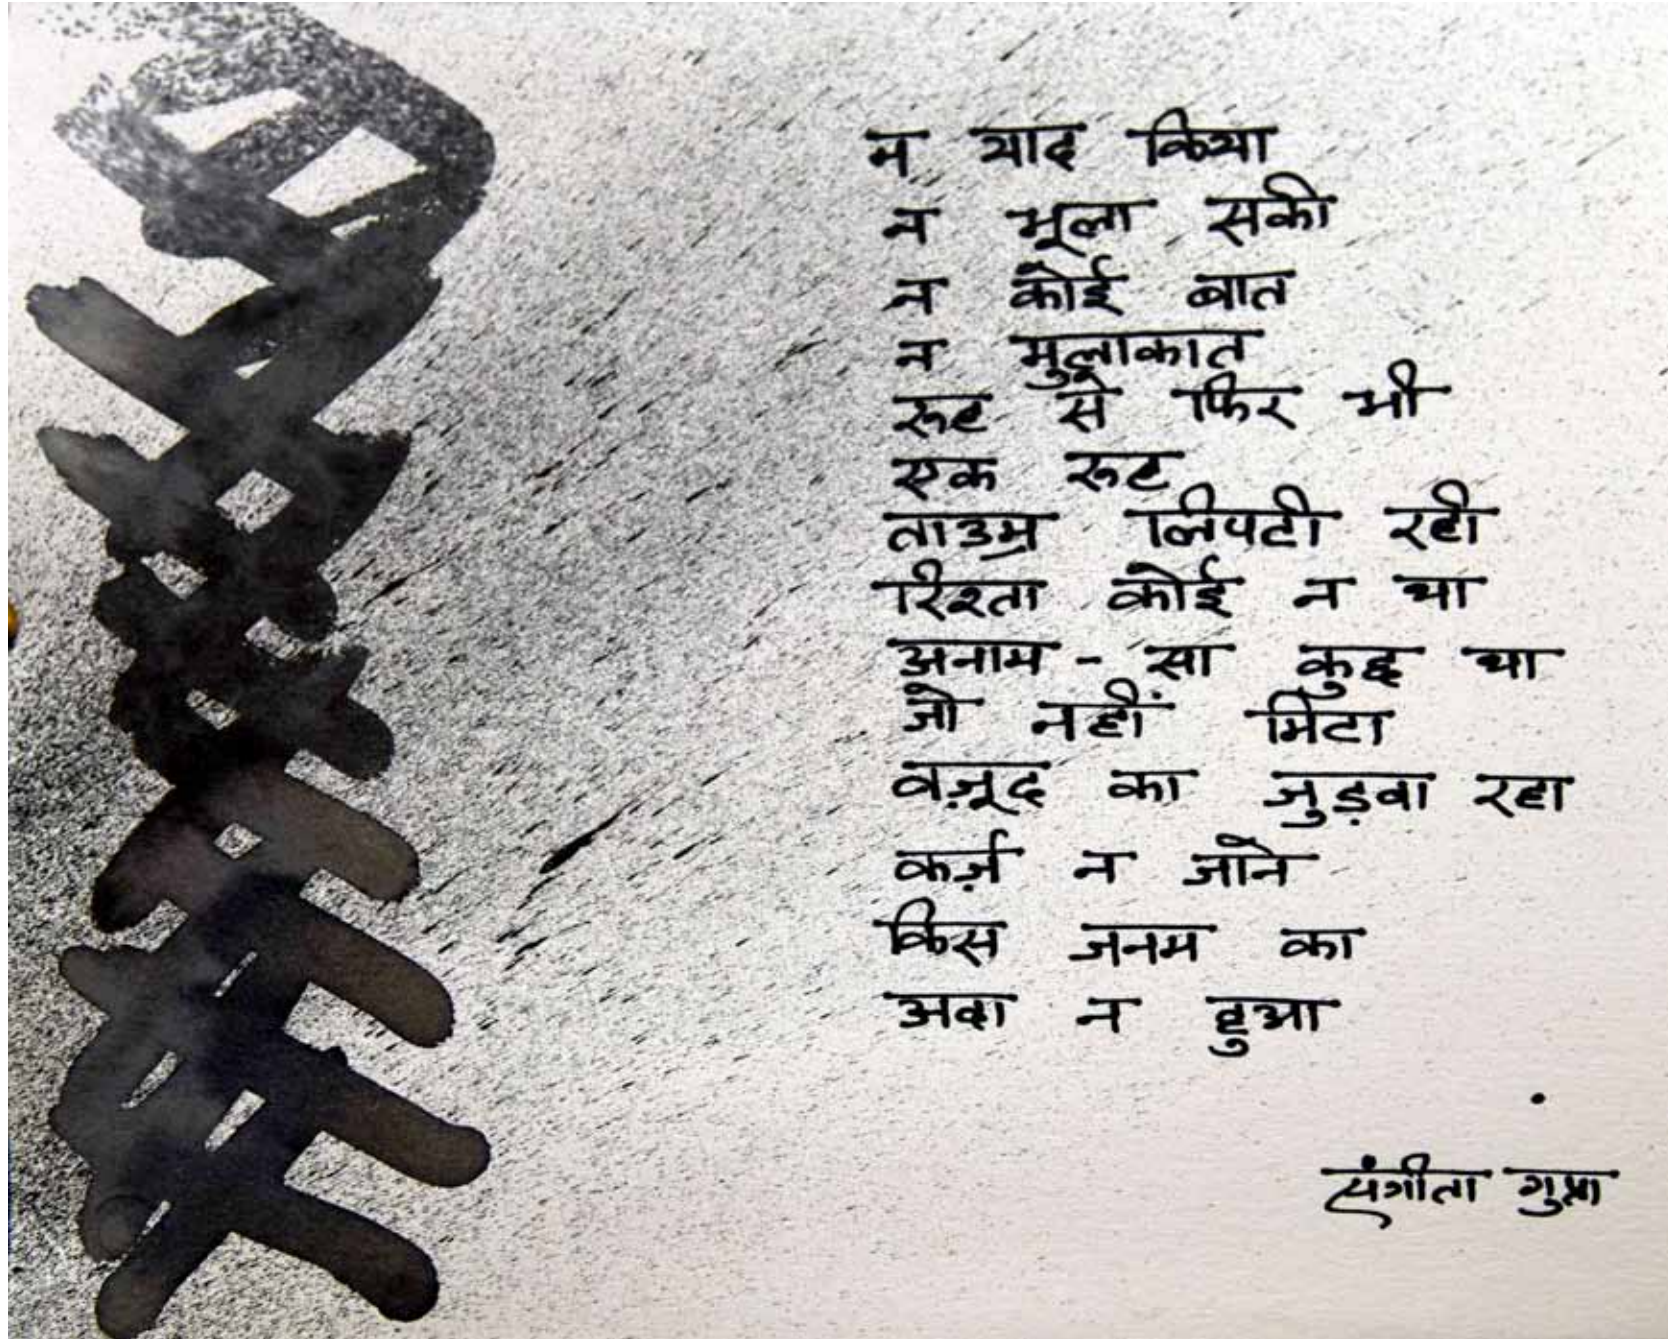 न याद किया
न भूला सकी
न कोई बात
न मुलाकात
रूह से फिर भी
एक रूह
ताउम्र लिपटी रही
रिश्ता कोई न था
अनाम - सा कुछ था
जो नहीं मिटा
वज़ूद का जुड़वा रहा
कर्ज़ न जाने
किस जनम का
अदा न हुआ
संगीता गुप्ता